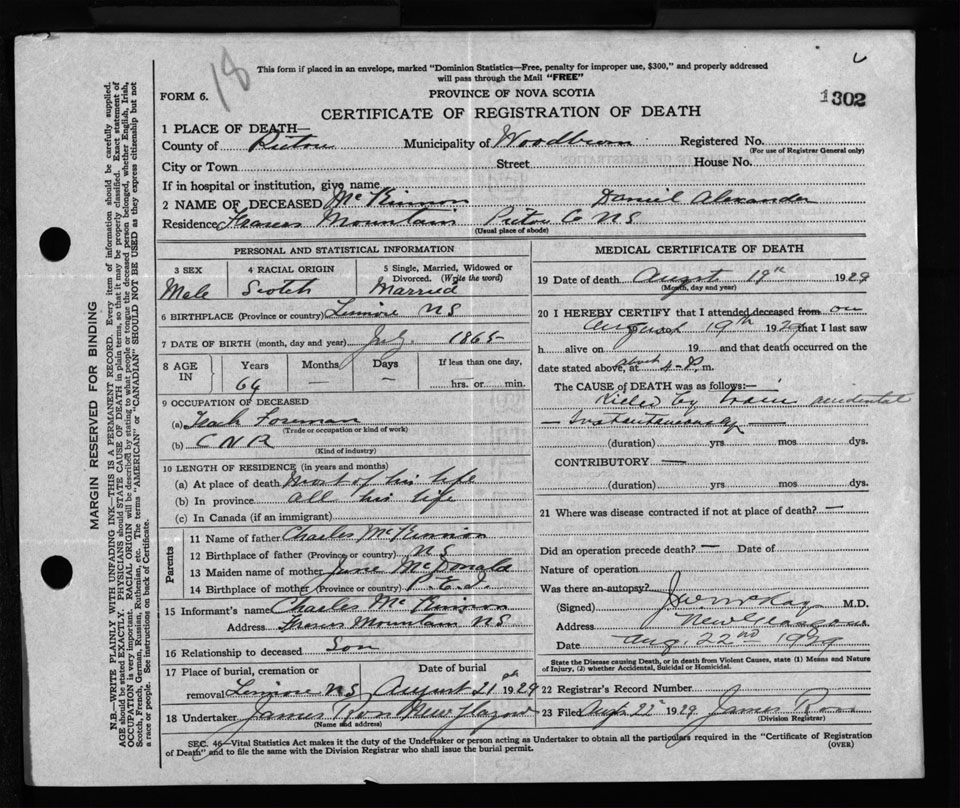 18
This form if placed in an envelope, marked "Dominion Statistics—Free, penalty for improper use, $300," and properly addressed
will pass through the Mail "FREE"
FORM 6.
PROVINCE OF NOVA SCOTIA
1302
CERTIFICATE OF REGISTRATION OF DEATH
1 PLACE OF DEATH—
County of Pictou Municipality of Woodburn Registered No.
(For use of Registrar General only)
City or Town Street House No.
If in hospital or institution, give name
2 NAME OF DECEASED McKinnon Daniel Alexander
Residence Frasers Mountain Pictou Co NS
(Usual place of abode)
PERSONAL AND STATISTICAL INFORMATION
3 SEX Male
4 RACIAL ORIGIN Scotch
5 Single, Married, Widowed or Divorced. (Write the word) Married
6 BIRTHPLACE (Province or country) Lismore NS
7 DATE OF BIRTH (month, day and year) July 1865
8 AGE IN Years 64 Months — Days — If less than one day, hrs. or min.
9 OCCUPATION OF DECEASED
(a) Track Foreman
(Trade or occupation or kind of work)
(b) C N R
(Kind of industry)
10 LENGTH OF RESIDENCE (in years and months)
(a) At place of death Most of his life
(b) In province all his life
(c) In Canada (if an immigrant)
Parents
11 Name of father Charles McKinnon
12 Birthplace of father (Province or country) NS
13 Maiden name of mother Jane McDonald
14 Birthplace of mother (Province or country) P.E.I.
15 Informant's name Charles McKinnon
Address Frasers Mountain NS
16 Relationship to deceased Son
17 Place of burial, cremation or removal Lismore NS
Date of burial August 21 1929
18 Undertaker James Ross New Glasgow
(Name and address)
MEDICAL CERTIFICATE OF DEATH
19 Date of death August 19th 1929
(Month, day and year)
20 I HEREBY CERTIFY that I attended deceased from on
August 19th 1929 that I last saw
h alive on 19 and that death occurred on the
date stated above, at about 4 P. m.
The CAUSE OF DEATH was as follows:—
Killed by train accidental
— Instantaneously —
(duration) yrs mos dys.
CONTRIBUTORY —
(duration) yrs mos dys.
21 Where was disease contracted if not at place of death? —
Did an operation precede death? — Date of
Nature of operation
Was there an autopsy?
(Signed) McKay M.D.
Address New Glasgow
Date Aug 22nd 1929
State the Disease causing Death, or in death from Violent Causes, state (1) Means and Nature
of Injury, (2) whether Accidental, Suicidal or Homicidal.
22 Registrar's Record Number
23 Filed 22 1929 James Ross
(Division Registrar)
SEC. 46—Vital Statistics Act makes it the duty of the Undertaker or person acting as Undertaker to obtain all the particulars required in the "Certificate of Registration
of Death" and to file the same with the Division Registrar who shall issue the burial permit.
(OVER)
MARGIN RESERVED FOR BINDING
N.B.—WRITE PLAINLY WITH UNFADING INK—THIS IS A PERMANENT RECORD. Every item of information should be carefully supplied.
AGE should be stated EXACTLY. PHYSICIANS should STATE CAUSE OF DEATH in plain terms, so that it may be properly classified. Exact statement of
OCCUPATION is very important. RACIAL ORIGIN will be described by stating to what people or tongue the deceased person belonged, whether English, Irish,
Scotch, French, German, Russian, Ruthenian, etc. The terms "AMERICAN" or "CANADIAN" SHOULD NOT BE USED as they express citizenship but not
a race or people. See instructions on back of Certificate.